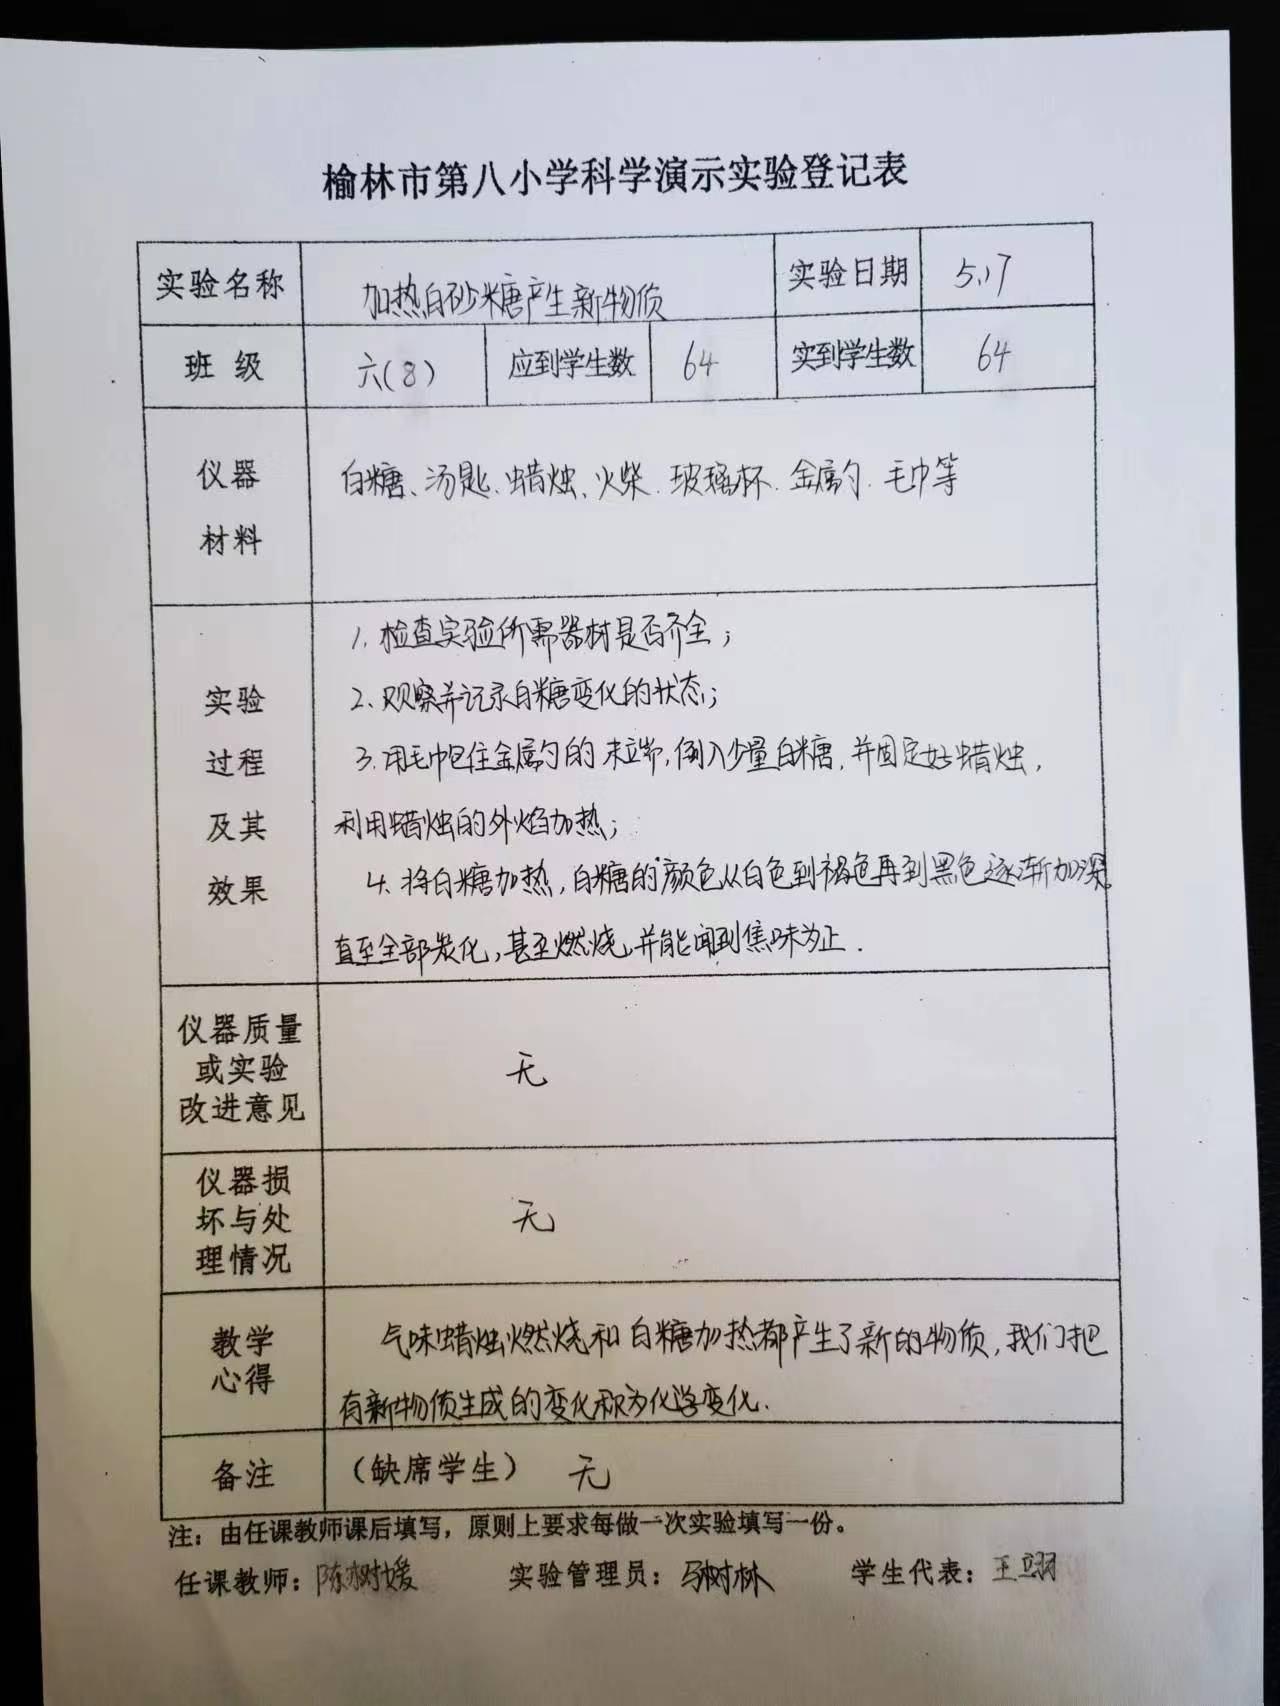 榆林市第八小学科学演示实验登记表
实验名称 加热白砂糖产生新物质 实验日期 5.17
班 级 六(8) 应到学生数 64 实到学生数 64
仪器
材料
白糖、汤匙、蜡烛、火柴、玻璃杯、金属勺、毛巾等
实验
过程
及其
效果
1、检查实验所需器材是否齐全;
2、观察并记录白糖变化的状态;
3、用毛巾包住金属勺的末端,倒入少量白糖,并固定好蜡烛,
利用蜡烛的外焰加热;
4、将白糖加热,白糖的颜色从白色到褐色再到黑色逐渐加深,
直至全部炭化,甚至燃烧,并能闻到焦味为止.
仪器质量
或实验
改进意见
无
仪器损
坏与处
理情况
无
教学
心得
气味蜡烛燃烧和白糖加热都产生了新的物质,我们把
有新物质生成的变化称为化学变化.
备注 (缺席学生) 无
注:由任课教师课后填写,原则上要求每做一次实验填写一份。
任课教师:陈树媛 实验管理员:马树林 学生代表:王翊